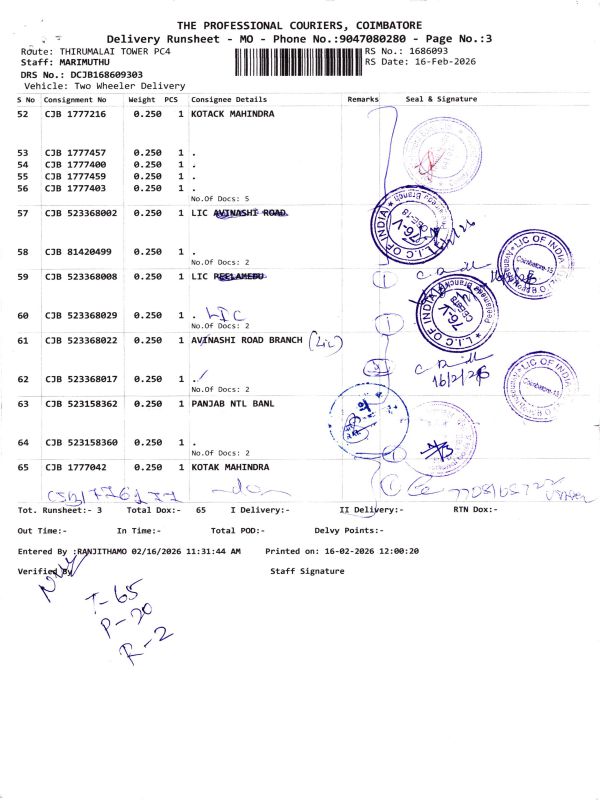 THE PROFESSIONAL COURIERS, COIMBATORE
Delivery Runsheet - MO - Phone No.:9047080280 - Page No.:3
Route: THIRUMALAI TOWER PC4 RS No.: 1686093
Staff: MARIMUTHU RS Date: 16-Feb-2026
DRS No.: DCJB168609303
Vehicle: Two Wheeler Delivery
S No Consignment No Weight PCS Consignee Details Remarks Seal & Signature
52 CJB 1777216 0.250 1 KOTACK MAHINDRA
53 CJB 1777457 0.250 1 .
54 CJB 1777400 0.250 1 .
55 CJB 1777459 0.250 1 .
56 CJB 1777403 0.250 1 .
No.Of Docs: 5
57 CJB 523368002 0.250 1 LIC AVINASHI ROAD
58 CJB 81420499 0.250 1 .
No.Of Docs: 2
59 CJB 523368008 0.250 1 LIC PEELAMEDU
60 CJB 523368029 0.250 1 . LIC
No.Of Docs: 2
61 CJB 523368022 0.250 1 AVINASHI ROAD BRANCH (Lic)
62 CJB 523368017 0.250 1 .
No.Of Docs: 2
16/2/26
63 CJB 523158362 0.250 1 PANJAB NTL BANL
64 CJB 523158360 0.250 1 .
No.Of Docs: 2
65 CJB 1777042 0.250 1 KOTAK MAHINDRA
L.I.C OF INDIA
76-V
L.I.C OF INDIA
76-V
LIC OF INDIA
Coimbatore-18
LIC OF INDIA
Coimbatore-18
Tot. Runsheet:- 3 Total Dox:- 65 I Delivery:- II Delivery:- RTN Dox:-
Out Time:- In Time:- Total POD:- Delvy Points:-
Entered By :RANJITHAMO 02/16/2026 11:31:44 AM Printed on: 16-02-2026 12:00:20
Verified By Staff Signature
T-65
P-20
R-2